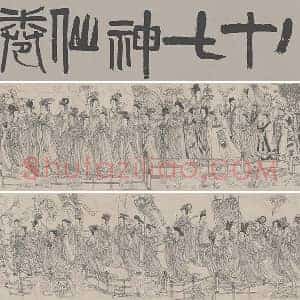 八十七神仙卷
Shufaziliao.com